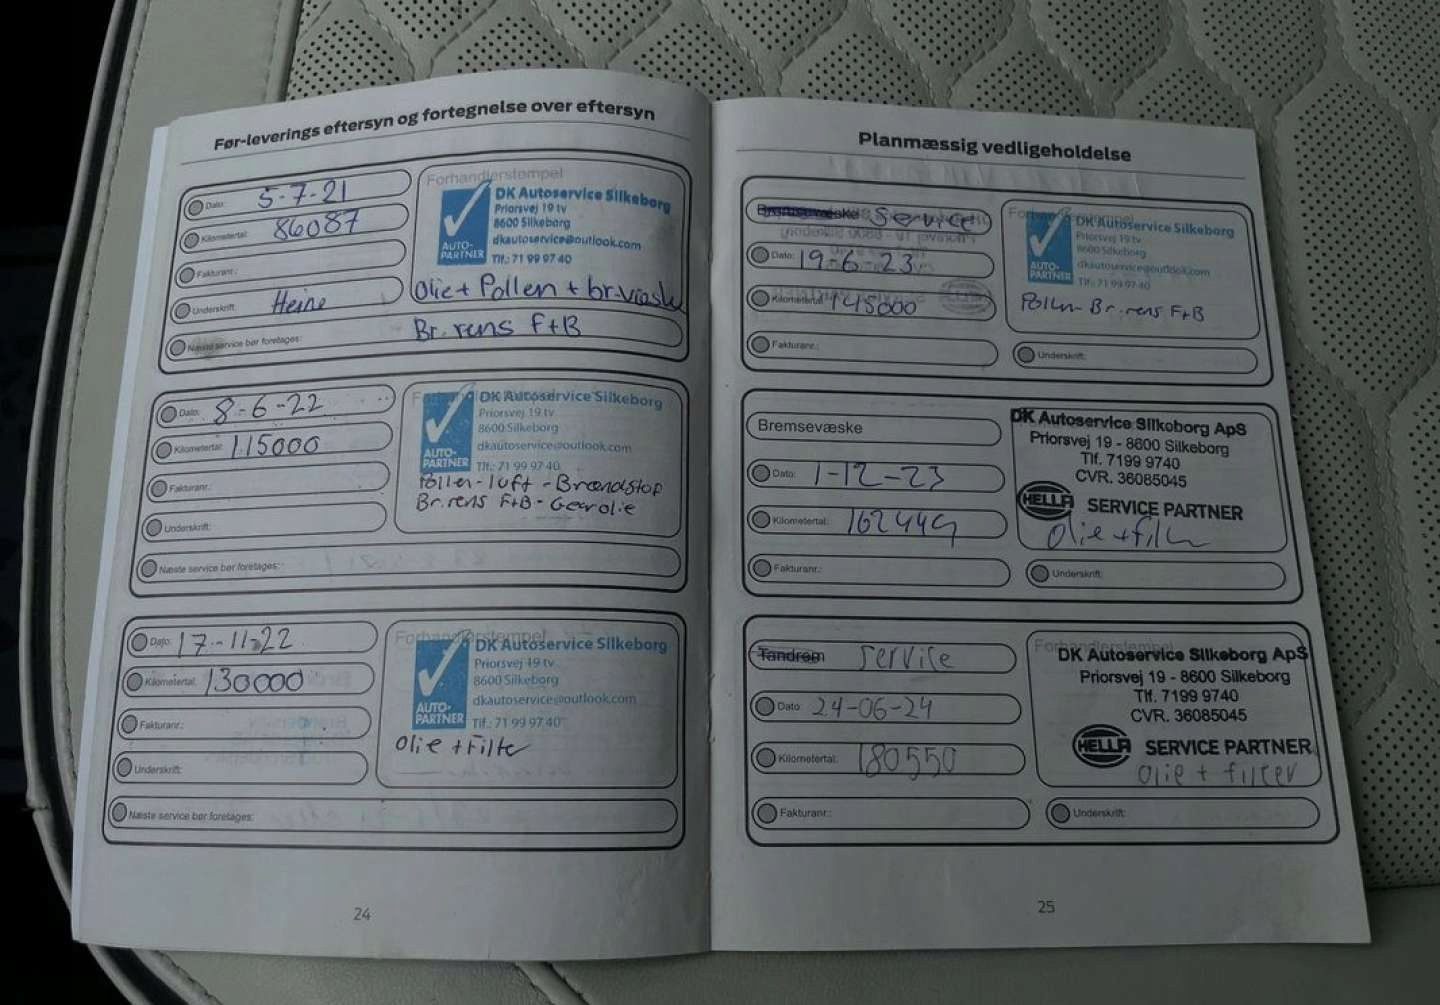 Før-leverings eftersyn og fortegnelse over eftersyn
Dato: 5-7-21
Kilometertal: 86087
Fakturanr.:
Underskrift: Heine
Næste service bør foretages:
Forhandlerstempel
DK Autoservice Silkeborg
Priorsvej 19 tv
8600 Silkeborg
dkautoservice@outlook.com
Tlf.: 71 99 97 40
AUTO-
PARTNER
Olie + Pollen + br.væske
Br.rens F+B
Dato: 8-6-22
Kilometertal: 115000
Fakturanr.:
Underskrift:
Næste service bør foretages:
DK Autoservice Silkeborg
Priorsvej 19 tv
8600 Silkeborg
dkautoservice@outlook.com
Tlf.: 71 99 97 40
AUTO-
PARTNER
Pollen-luft-Brændstof
Br.rens F+B - Gearolie
Dato: 17-11-22
Kilometertal: 130000
Fakturanr.:
Underskrift:
Næste service bør foretages:
Forhandlerstempel
DK Autoservice Silkeborg
Priorsvej 19 tv
8600 Silkeborg
dkautoservice@outlook.com
Tlf.: 71 99 97 40
AUTO-
PARTNER
Olie + Filter
24
Planmæssig vedligeholdelse
Bremsevæske Service
Dato: 19-6-23
Kilometertal: 145000
Fakturanr.:
Forhandlerstempel
DK Autoservice Silkeborg
Priorsvej 19 tv
8600 Silkeborg
dkautoservice@outlook.com
Tlf.: 71 99 97 40
AUTO-
PARTNER
Pollen- Br.rens F+B
Underskrift:
Bremsevæske
Dato: 1-12-23
Kilometertal: 162449
Fakturanr.:
DK Autoservice Silkeborg ApS
Priorsvej 19 - 8600 Silkeborg
Tlf. 7199 9740
CVR. 36085045
HELLA SERVICE PARTNER
Olie + filter
Underskrift:
Tandrem Service
Dato: 24-06-24
Kilometertal: 180550
Fakturanr.:
Forhandlerstempel
DK Autoservice Silkeborg ApS
Priorsvej 19 - 8600 Silkeborg
Tlf. 7199 9740
CVR. 36085045
HELLA SERVICE PARTNER
Olie + filter
Underskrift:
25